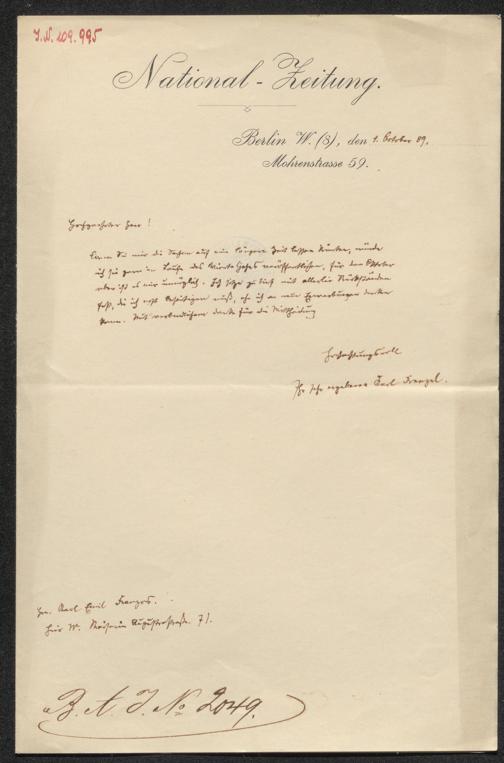 J.N. 109.995
National-Zeitung.
Berlin W. (8), den 1. October 89.
Mohrenstrasse 59.
Hochgeehrter Herr!
Wenn Sie mir die Sachen auf eine längere Zeit lassen könnten, würde
ich sie gern im Laufe des Vierteljahres veröffentlichen, für den October
aber ist es mir unmöglich. Ich sitze zu tief mit allerlei Rückständen
fest, die ich erst beseitigen muß, eh ich an neue Erwerbungen denken
kann. Mit verbindlichem Danke für die Mittheilung
Hochachtungsvoll
Ihr sehr ergebener Karl Frenzel.
Hrn. Karl Emil Franzos.
hier W. Kaiserin Augustastraße. 71.
B. A. J. No 2049.